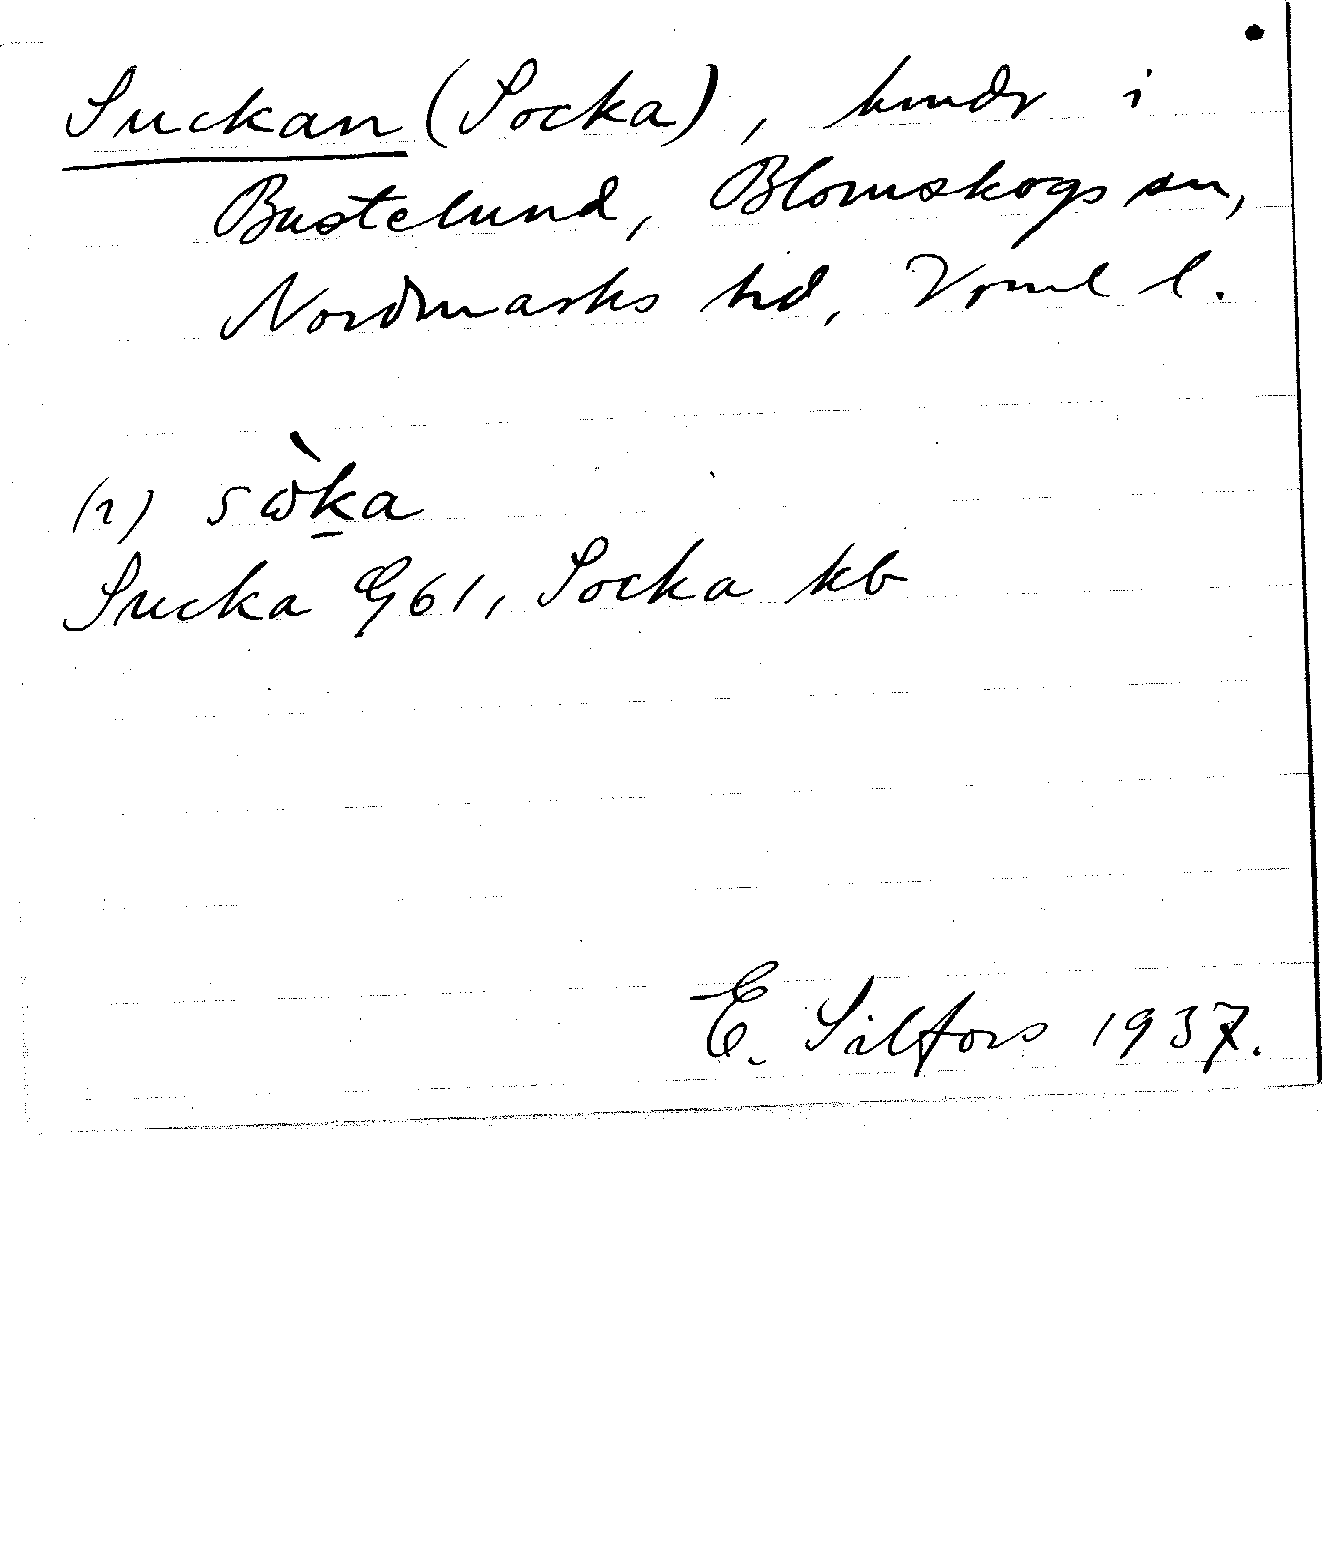 Suckan (Socka), hmdr i
Bastelund, Blomskogs sn,
Nordmarks hd, Vrml l.
(1) sὼka
Sucka G61, Socka kb
E. Silfors 1937.